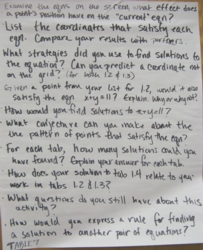 Examine the eqns on the screen, what effect does
a point's position have on the "current" eqn?
List the coordinates that satisfy each
eqn. Compare your results with partners.
What strategies did you use to find solutions to
the equation? Can you predict a coordinate not
on the grid? (for both 1.2 & 1.3)
Given a point from your list for 1.2, would it also
satisfy the eqn x+y=11? Explain why or why not?
How would you find solutions to x+y=11?
What conjecture can you make about the
the pattern of points that satisfy the eqn?
For each tab, how many solutions could you
have found? Explain your answer for each tab.
How does your solution to tab 1.4 relate to your
work in tabs 1.2 & 1.3?
• What questions do you still have about this
activity?
• How would you express a rule for finding
a solution to another pair of equations?
TABLE 7